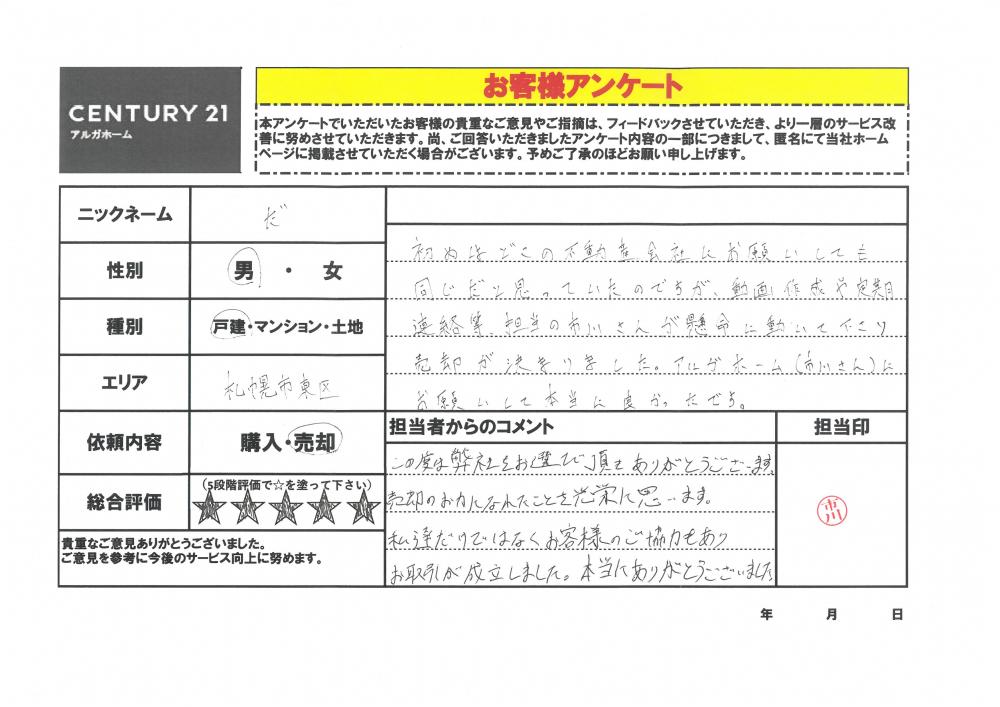 CENTURY 21
アルガホーム
お客様アンケート
本アンケートでいただいたお客様の貴重なご意見やご指摘は、フィードバックさせていただき、より一層のサービス改
善に努めさせていただきます。尚、ご回答いただきましたアンケート内容の一部につきまして、匿名にて当社ホーム
ページに掲載させていただく場合がございます。予めご了承のほどお願い申し上げます。
ニックネーム
だ
性別
男・女
種別
戸建・マンション・土地
エリア
札幌市東区
依頼内容
購入・売却
総合評価
(5段階評価で☆を塗って下さい)
貴重なご意見ありがとうございました。
ご意見を参考に今後のサービス向上に努めます。
初めはどこの不動産会社にお願いしても
同じだと思っていたのですが、動画作成や定期
連絡等、担当の市川さんが懸命に動いて下さり
売却が決まりました。アルガホーム(市川さん)に
お願いして本当に良かったです。
担当者からのコメント
この度は弊社をお選び頂きありがとうございます。
売却のお力になれたことを光栄に思います。
私達だけではなくお客様のご協力もあり
お取引が成立しました。本当にありがとうございました
担当印
市川
年 月 日